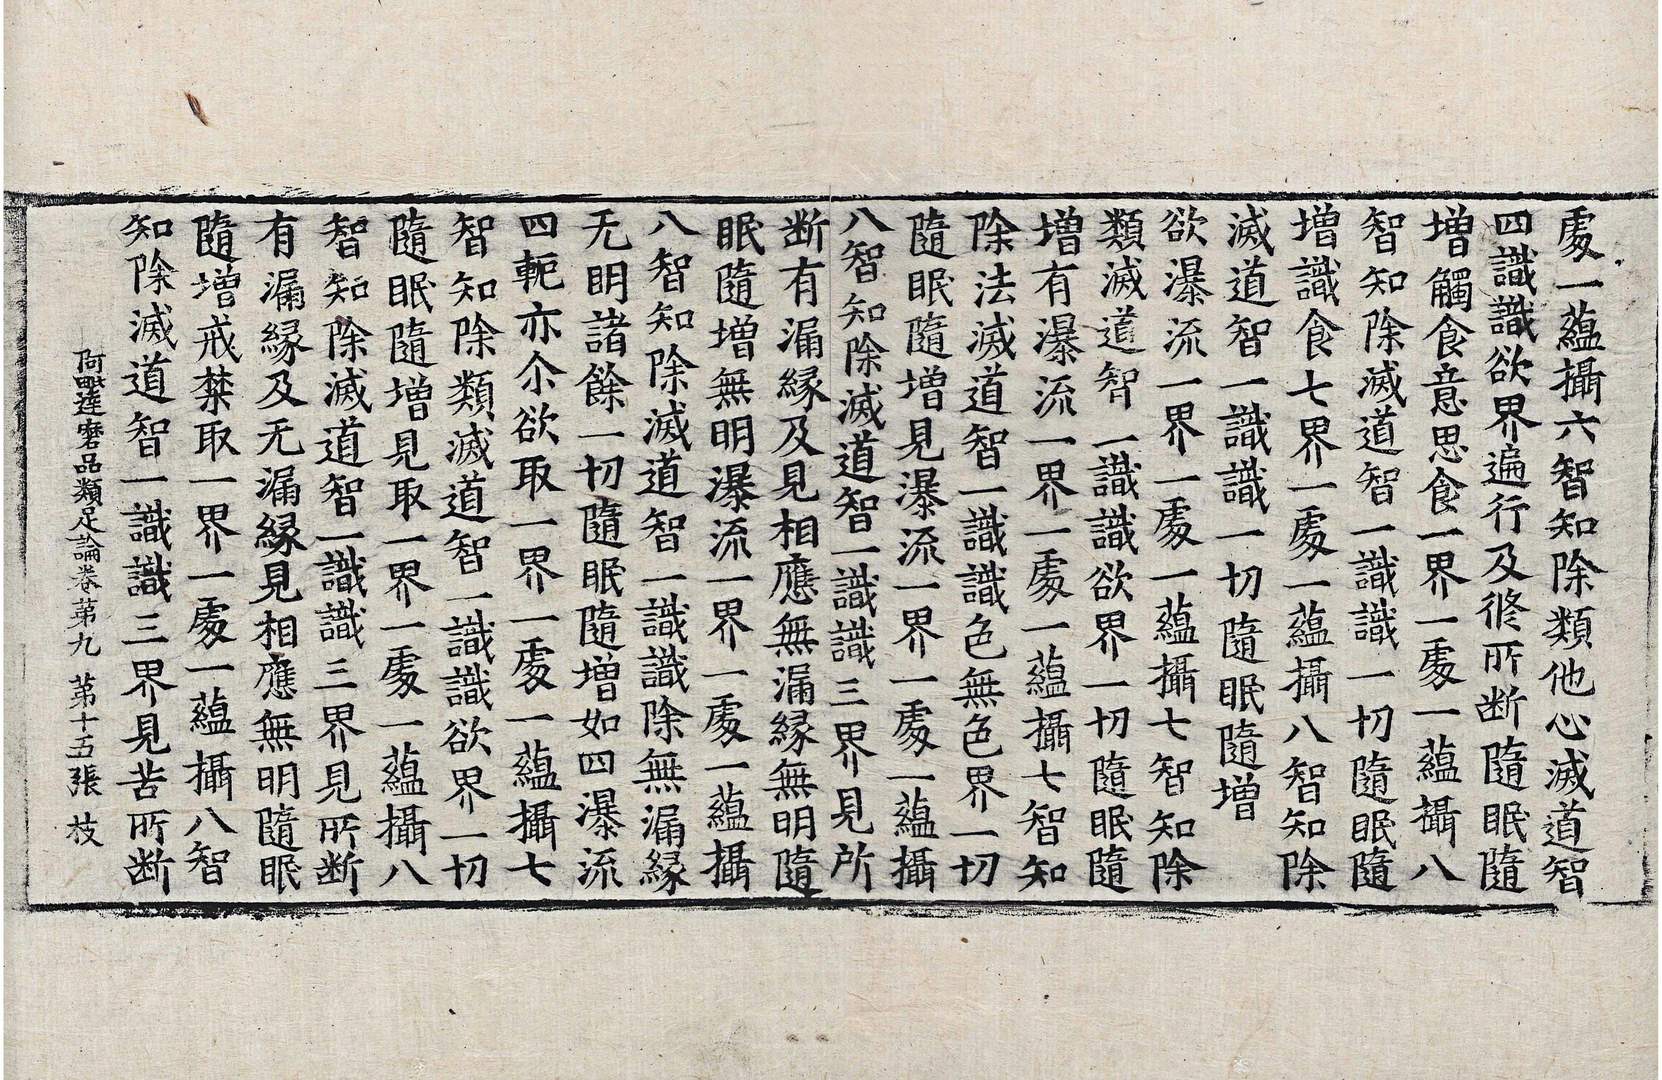 處一蘊攝六智知除類他心滅道智
四識識欲界遍行及修所斷隨眠隨
增觸食意思食一界一處一蘊攝八
智知除滅道智一識識一切隨眠隨
增識食七界一處一蘊攝八智知除
滅道智一識識一切隨眠隨增
欲瀑流一界一處一蘊攝七智知除
類滅道智一識識欲界一切隨眠隨
增有瀑流一界一處一蘊攝七智知
除法滅道智一識識色無色界一切
隨眠隨增見瀑流一界一處一蘊攝
八智知除滅道智一識識三界見所
断有漏緣及見相應無漏緣無明隨
眠隨增無明瀑流一界一處一蘊攝
八智知除滅道智一識識除無漏緣
无明諸餘一切隨眠隨增如四瀑流
四軛亦尒欲取一界一處一蘊攝七
智知除類滅道智一識識欲界一切
隨眠隨增見取一界一處一蘊攝八
智知除滅道智一識識三界見所断
有漏緣及无漏緣見相應無明隨眠
隨增戒禁取一界一處一蘊攝八智
知除滅道智一識識三界見苦所断
阿毗達磨品類足論卷第九　第十五張　枝